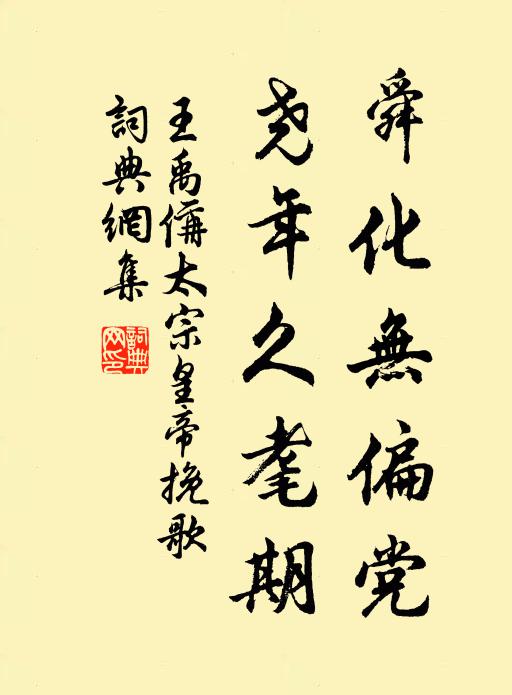 舜化無偏党
尧年久耄期
王禹偁太宗皇帝挽歌
詞典網集
詞典網印